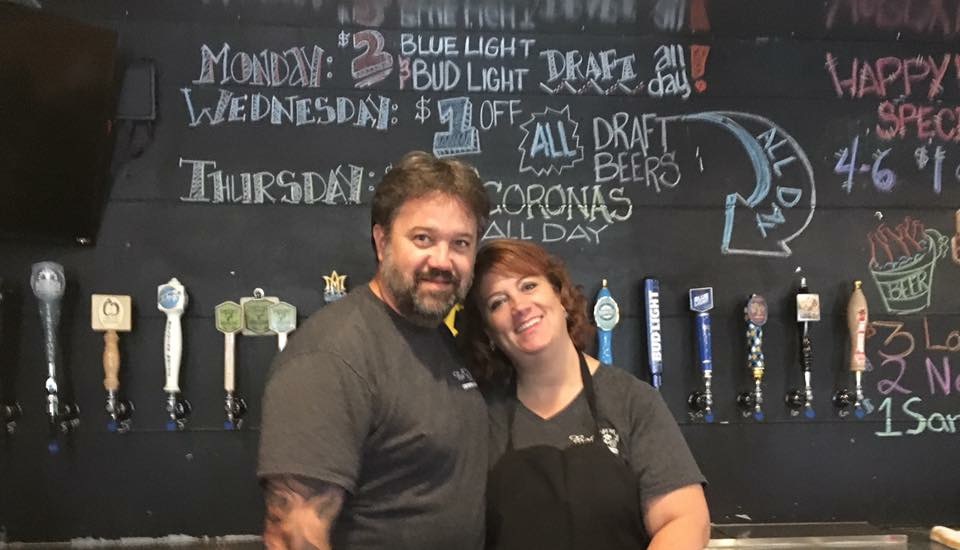 BLUE LIGHT
MONDAY: $2 BLUE LIGHT
BUD LIGHT DRAFT all day!
WEDNESDAY: $1 OFF ALL DRAFT BEERS ALL DAY
THURSDAY: CORONAS
ALL DAY
HAPPY
SPEC
4-6 $1
BEER
$3
2
$1 Sam
BUD LIGHT